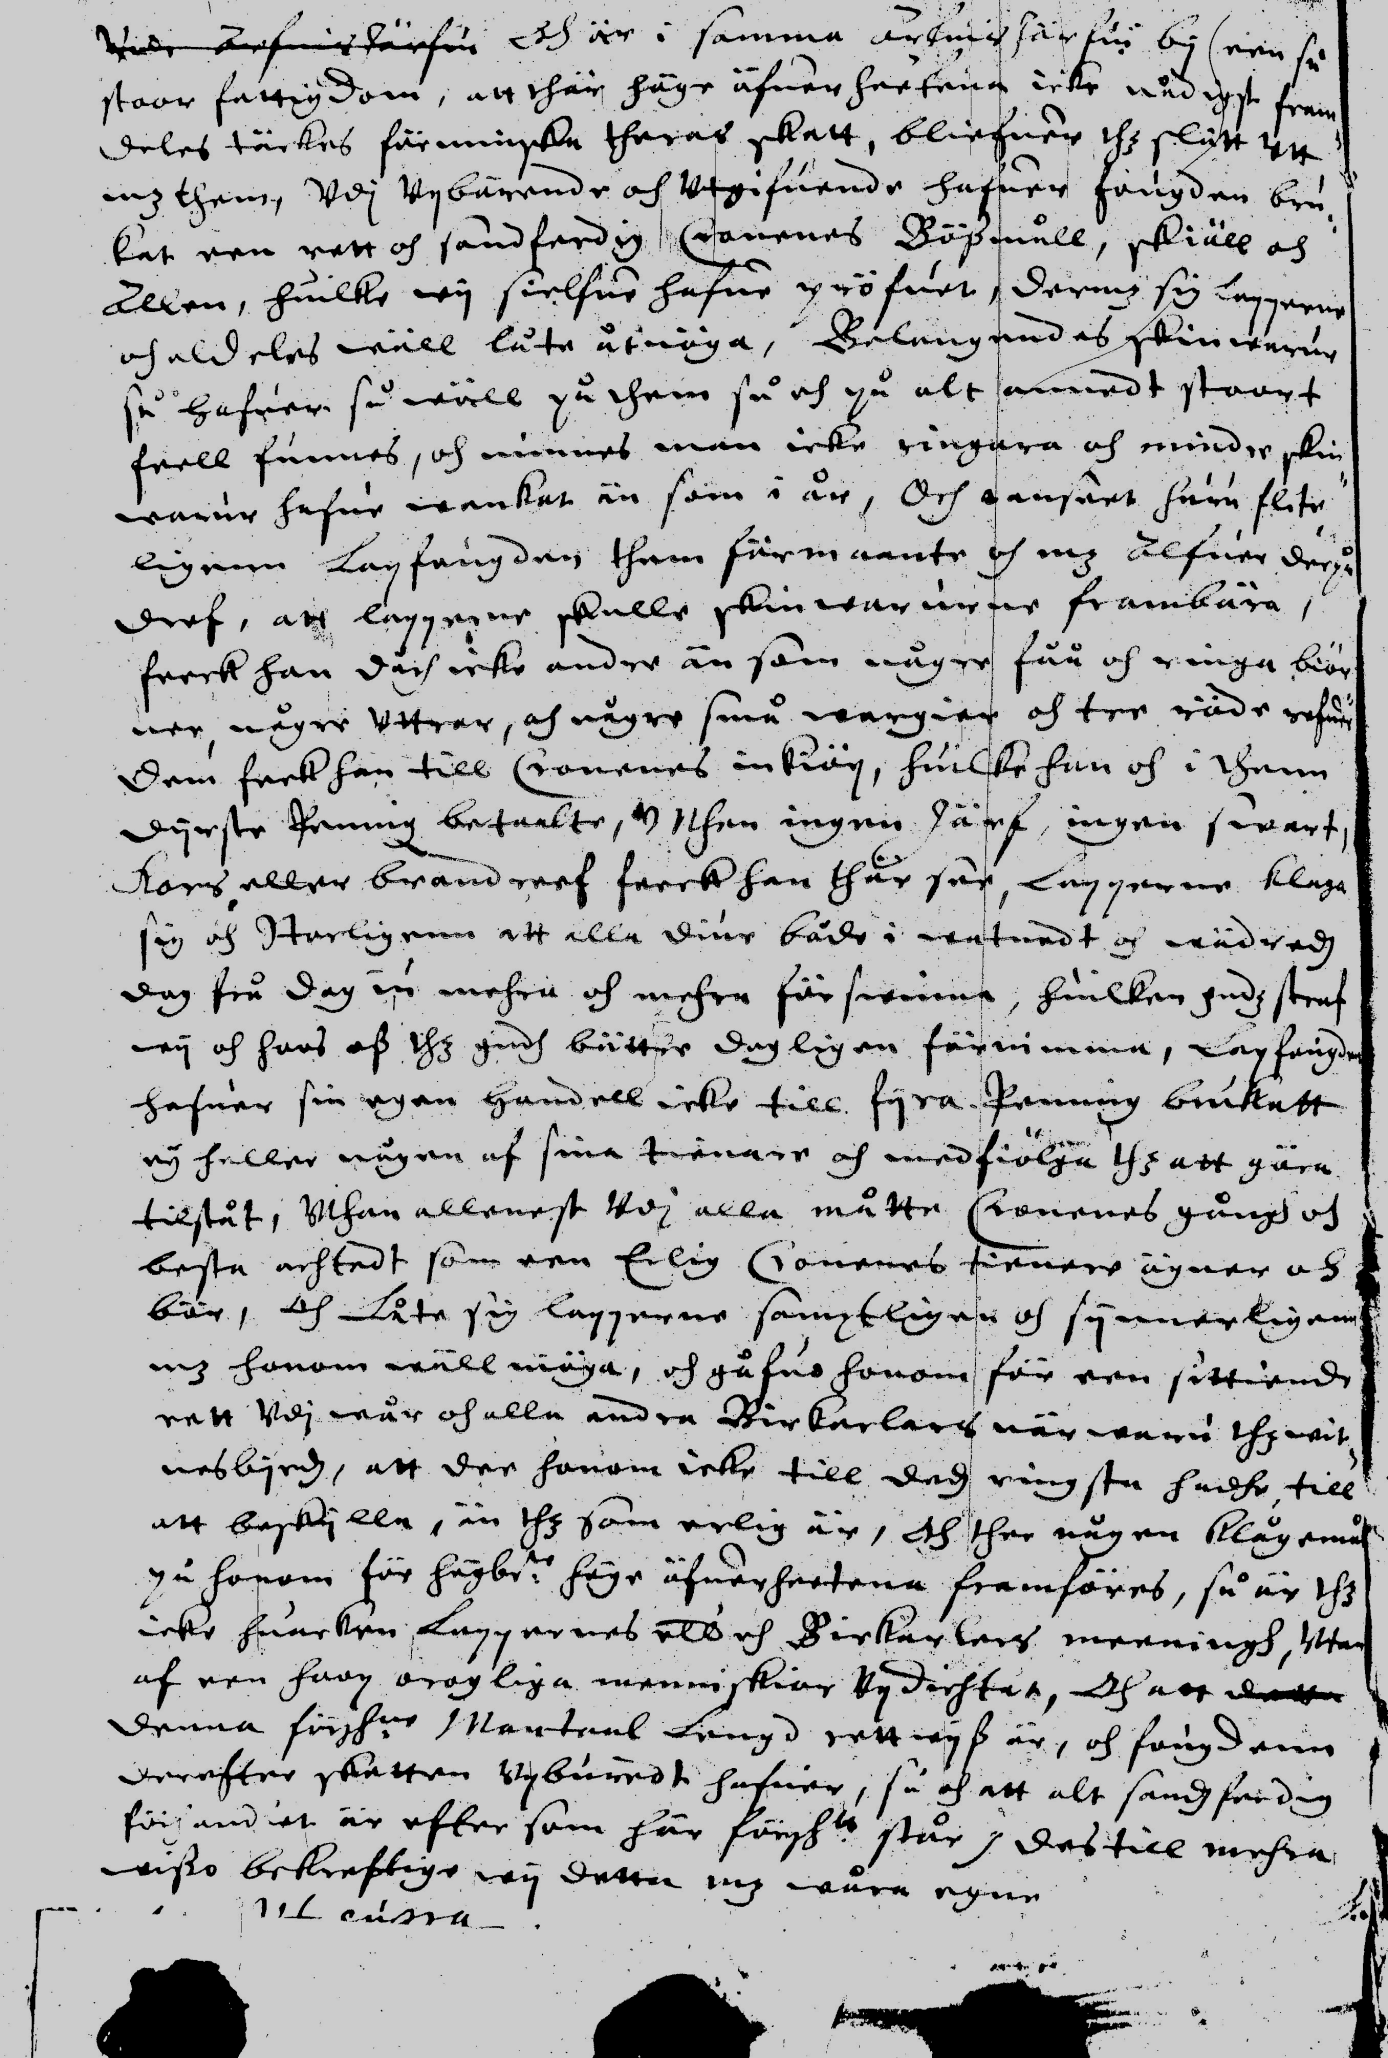 Och är i samma Arfuisjärfui by een så
stoor fattigdom, att ther höge öfuerheetena icke nådigst fram
deles täckes förminska theras skatt, blifuer thz slätt utt
mz them, Vdj Vpbärende och Vtgifuende hafuer fougden bru
kat een rett och sandferdig Cronenes Bößmåll, skiäll och
Allen, huilke wij sielfue hafue pröfuet, dermz sig lapperne
och aldeles wäll låte åtnöga, Belangendes skinwarur
så hafuer så wäll på them så och på alt annedt stoort
feell funnes, och minnes man icke ringara och mindre skin
warur hafue wankat än som i år, Och oanseet huru flite
ligenn Lapfougden them förmaante och mz Alfuer derpå
dref, att lapperne skulle skinwarurne frambära,
feeck han doch icke andre än som någre fåå och ringa biör
ner, någre Vttrar, och någre små wargier och tre röde refuer
Dem feck han till Cronenes inkiöp, huilke han och i thenn
dyrste Penning betaalte, Vthen ingen Järf, ingen swart,
Kors eller brandreef feeck han ther see, Lapperne klaga
sig och Storligenn att alla diur både i watnedt och
dag frå dag iu mehra och mehra försuinna, huilken gudz straf
wij och hoos oß thz gudh bättre dagligen förnimma, Lapfougden
hafuer sin egen Handell icke till fyra Penning brukatt
ey heller någen af sina tienare och medfölga thz att göra
tilståt, Vthan allenest Vdj alla måtte Cronenes gångh och
besta achtedt som een Erlig Cronenes tienere ägner och
bör, Och Låte sig lapperne samptligen och synnerligenn
mz honom wäll nöga, och gåfuo honom för een sittiende
rett Vdj wår och alla andra Birkarlars närwaru thz wit
nesbyrd, att dee honom icke till ded ringsta hadhe till
att beskylla, än thz som erlig är, Och ther någen klagemål
på honom för högbete höge öfuerheetena framföres, så är thz
icke huarken Lappernes eller Birkarlers meeningh, Vtan
af een hoop orogliga menniskior Vpdichtat, Och att detta
denna förschne Mantaal Lengd rettwijß är, och fougdenn
derefter skatten Vpburedt hafuer, så och att alt sandferdig
är efter som här förschit står, Des till mehra
wißo bekreftige wij detta mz wåra egne